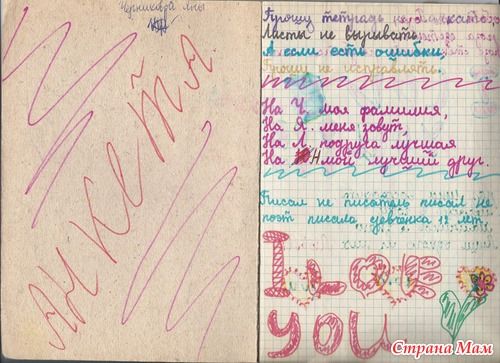 Черникова Яны
АНКЕТА.
Прошу тетрадь не
Листы не вырывать
А если есть ошибки,
Прошу не исправлять.
На Ч. моя фамилия,
На Я. меня зовут,
На Л. подруга лучшая
На Н мой лучший друг.
Писал не писатель писал не
поэт писала девчёнка 12 лет.
I LOVE
YOU
Страна Мам